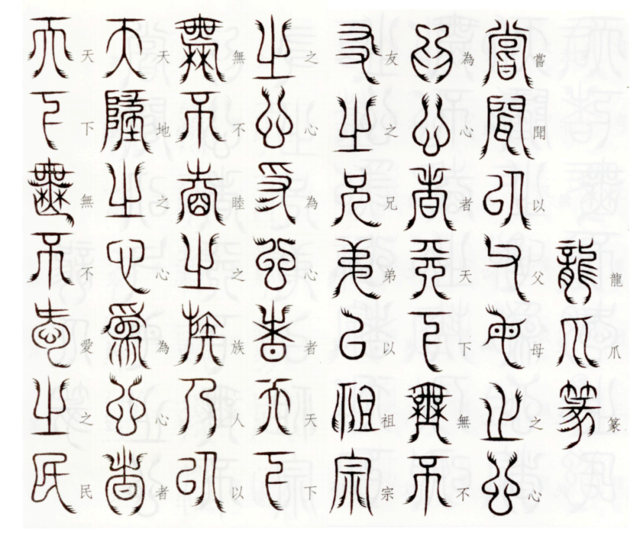 龍爪篆
嘗聞以父母之心
為心者天下無不
友之兄弟以祖宗
之心為心者天下
無不睦之族人以
天地之心為心者
天下無不愛之民